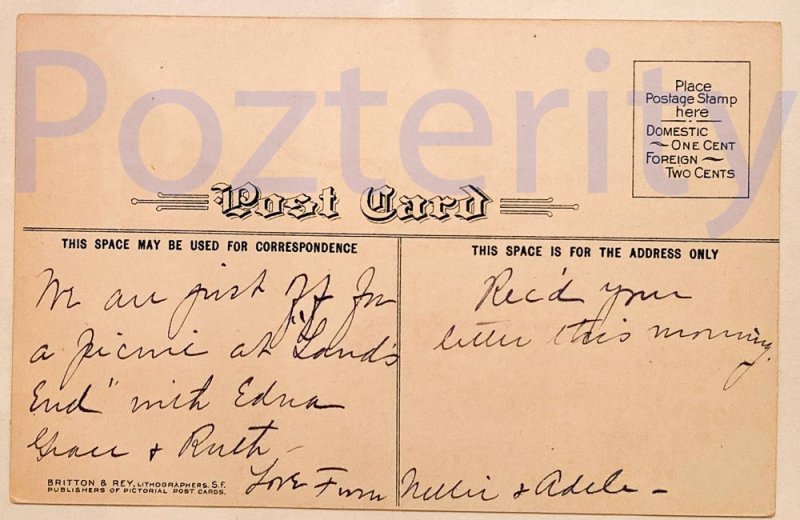 Pozterity
Place
Postage Stamp
here
DOMESTIC
ONE CENT
FOREIGN
TWO CENTS
Post Card
THIS SPACE MAY BE USED FOR CORRESPONDENCE
We are just off for
a picnic at "Land's
End" with Edna
Grace & Ruth -
Love From Nellie & Adele -
THIS SPACE IS FOR THE ADDRESS ONLY
Rec'd your
letter this morning.
BRITTON & REY, LITHOGRAPHERS, S.F.
PUBLISHERS OF PICTORIAL POST CARDS.